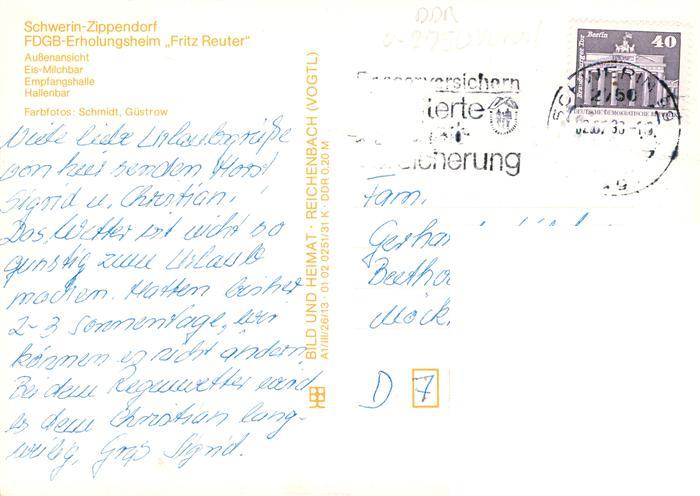 Schwerin-Zippendorf
FDGB-Erholungsheim „Fritz Reuter"
Außenansicht
Eis-Milchbar
Empfangshalle
Hallenbar
Farbfotos: Schmidt, Güstrow
Viele liebe Urlaubsgrüße
von hier senden Horst
Sigrid u. Christian.
Das Wetter ist nicht so
günstig zum Urlaub
machen. Hatten bisher
2-3 Sonnentage, wir
können es nicht ändern.
Bei dem Regenwetter wird
es dem Christian lang-
weilig, Gruß Sigrid.
BILD UND HEIMAT · REICHENBACH (VOGTL)
A1/III/26/13 · 01 02 0251/31 K · DDR 0,20 M
DDR
versichern
ierte
sicherung
Brandenburger Tor Berlin
40
DEUTSCHE DEMOKRATISCHE
SCHWERIN
2750
Fam.
Gerha
Beetho
Möck
D 7